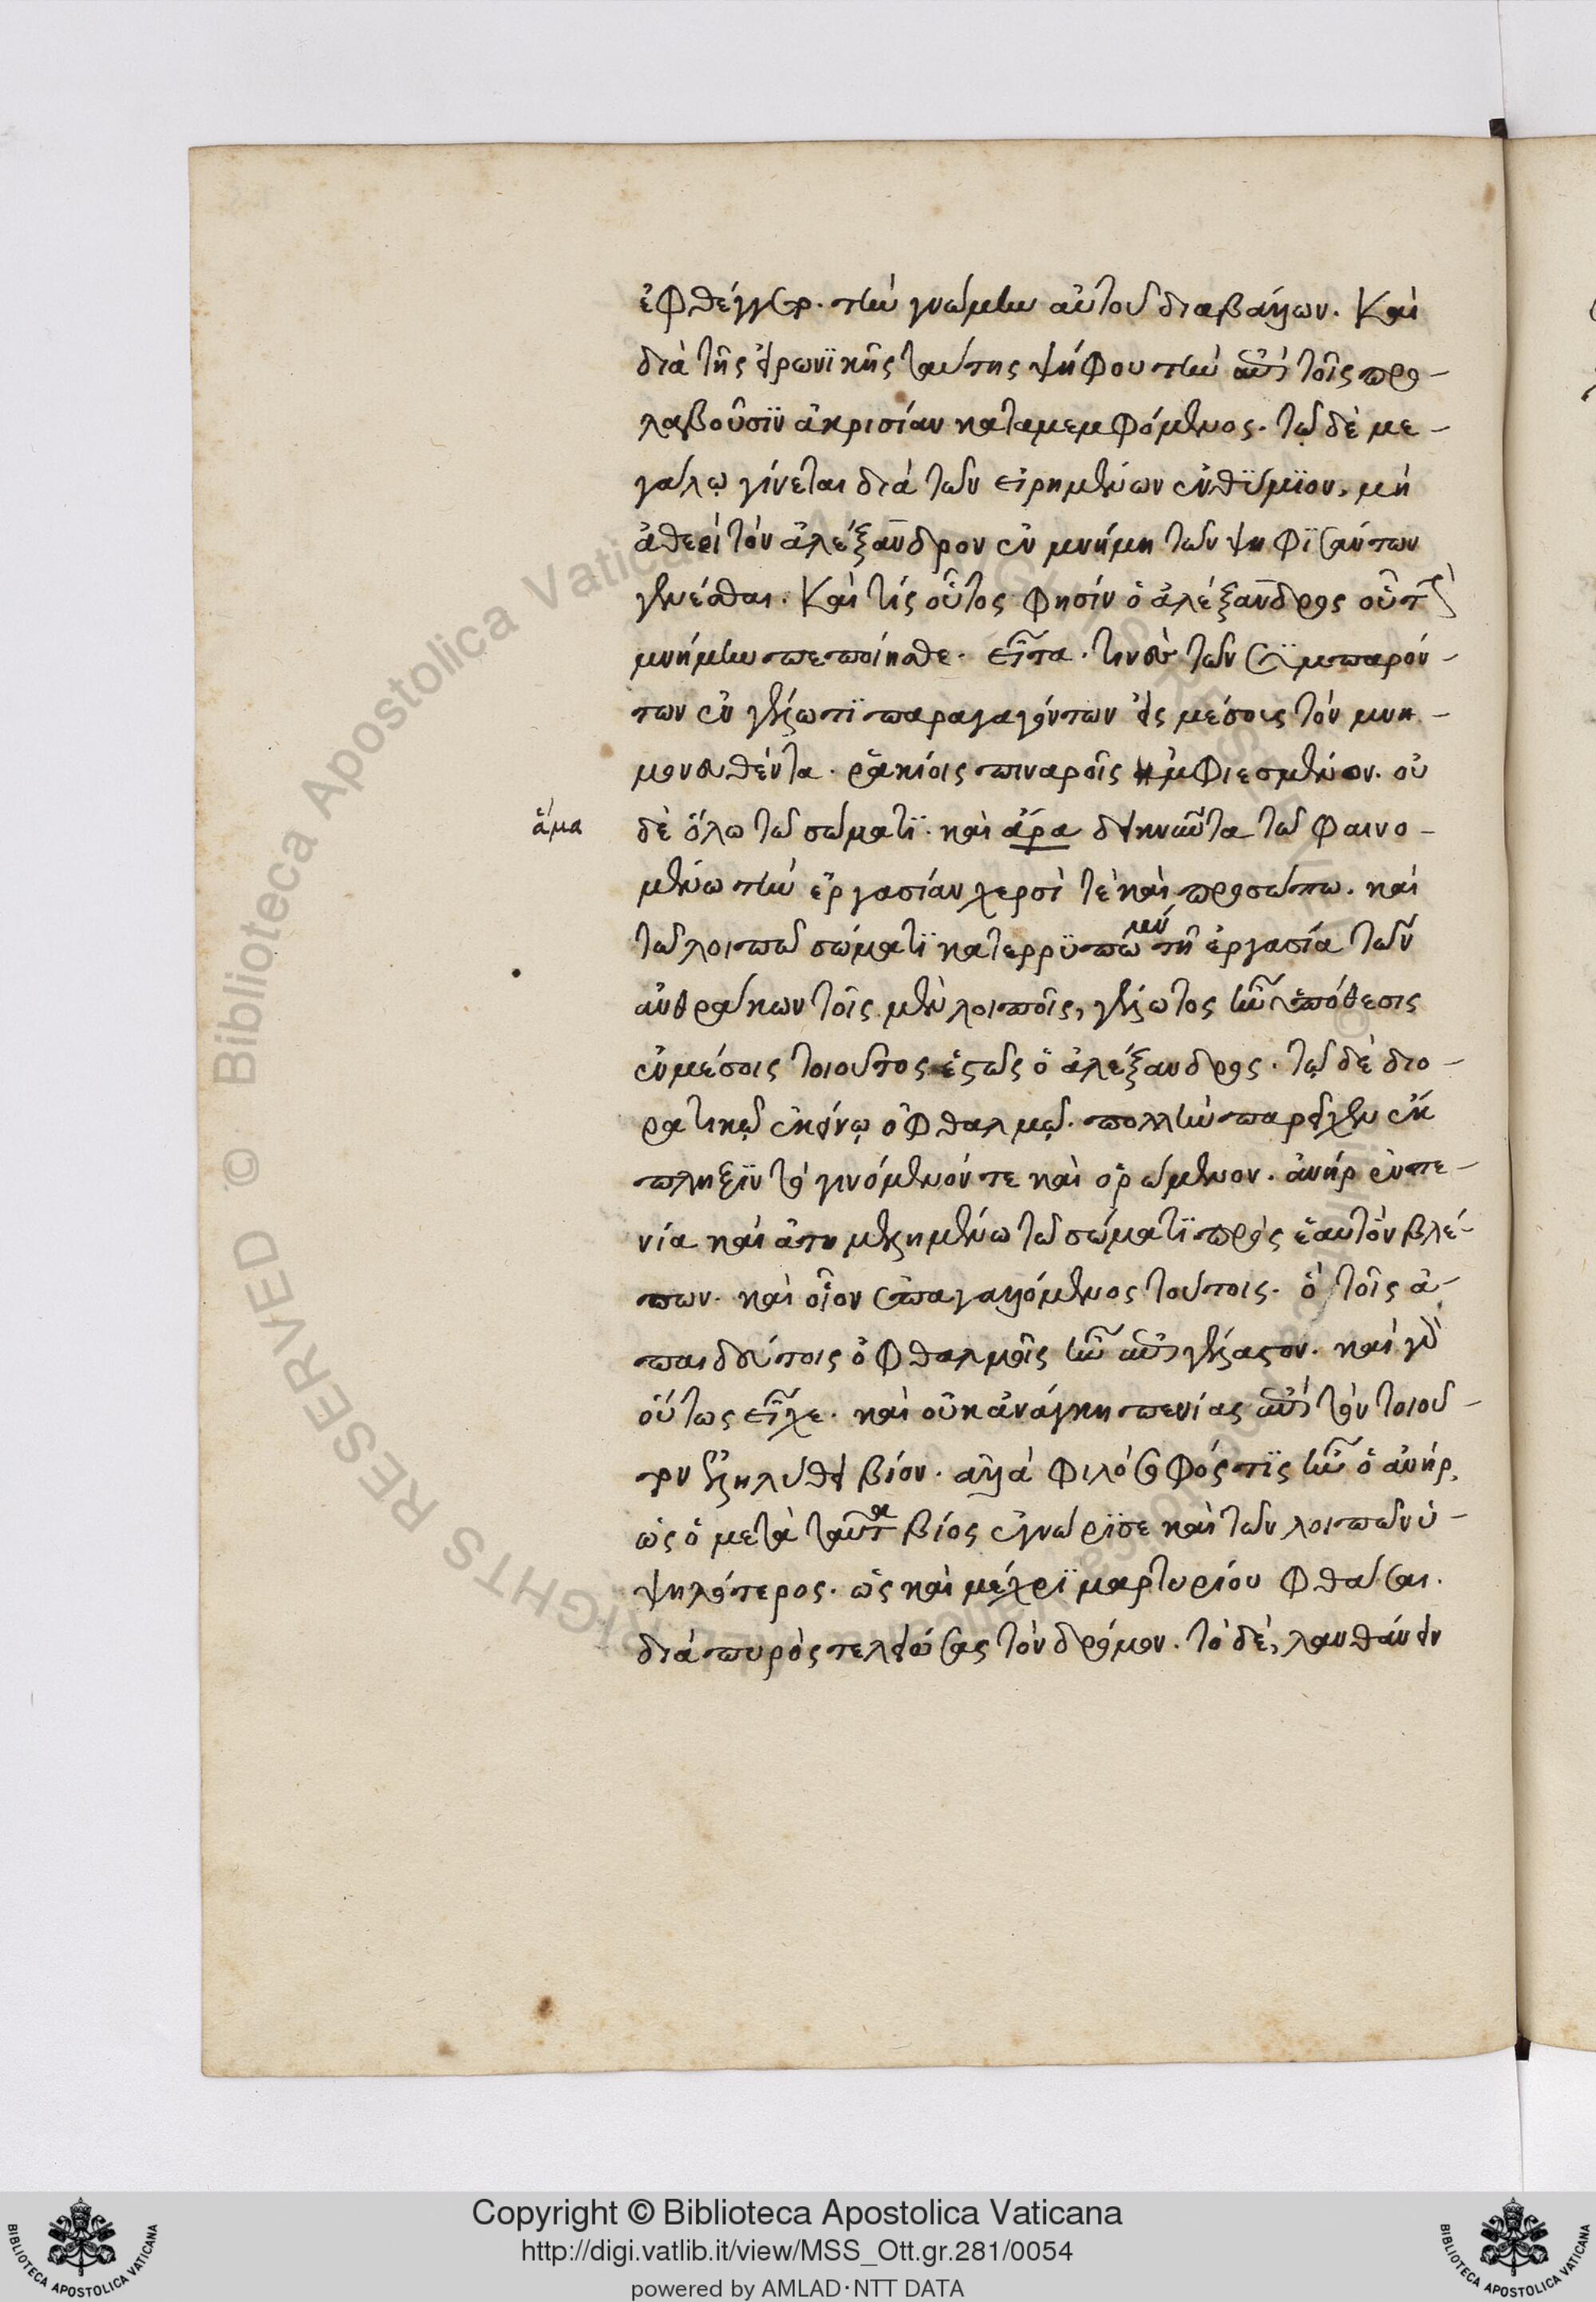 ἐφθέγγετο. τὴν γνώμην αὐτοῦ διαβάλλων. Καὶ
διὰ τῆς εἰρωνϊκῆς ταύτης ψήφου τὴν ἐπὶ τοῖς προ-
λαβοῦσϊν ἀκρισίαν καταμεμφόμενος. τῷ δὲ με-
γάλῳ γίνεται διὰ τῶν εἰρημένων ἐνθύμϊον, μὴ
ἀθεεὶ τὸν ἀλέξανδρον ἐν μνήμη τῶν ψηφϊσάντων
γενέσθαι. Καὶ τίς οὗτος φησὶν ὁ ἀλέξανδρος οὗ τὴν
μνήμην πεποίησθε. εἶτα. τινὸς τῶν συμπαρόν-
των ἐν γέλωτϊ παραγαγόντων εἰς μέσοις τὸν μνη-
μονευθέντα. ῥακίοις πιναροῖς ἠμφιεσμένον. οὐ
ἅμα
δὲ ὅλω τῶ σώματϊ. καὶ ἄρα δεικνῦντα τῶ φαινο-
μένω τὴν ἐργασίαν χερσὶ τὲ καὶ προσώπω. καὶ
τῶ λοιπῶ σώματϊ κατερρϋπωμέν τῆ ἐργασία τῶν
ἀνθράκων τοῖς μὲν λοιποῖς, γέλωτος ἦν ὑπόθεσις
ἐν μέσοις τοιοῦτος ἑστὼς ὁ ἀλέξανδρος. τῷ δὲ διο-
ρατικῷ ἐκείνῳ ὀφθαλμῷ. πολλὴν παρεῖχεν ἔκ
πληξϊν τὸ γινόμενόν τε καὶ ὁρώμενον. ἀνὴρ ἐν πε-
νία καὶ ἀτημελημένω τῶ σώματϊ πρὸς ἑαυτὸν βλέ-
πων. καὶ οἷον ἐπαγαλλόμενος τούτοις. ὃ τοῖς ἀ-
παιδεύτοις ὀφθαλμοῖς ἦν ἐπιγέλαστον. καὶ γὰρ
οὕτως εἶχε. καὶ οὐκ ἀνάγκη πενίας ἐπὶ τὸν τοιοῦ-
τον ἐξηλύθει βίον. ἀλλὰ φιλόσοφός τϊς ἦν ὁ ἀνήρ,
ὡς ὁ μετὰ ταῦτα βίος ἐγνώρϊσε καὶ τῶν λοιπῶν ὑ-
ψηλότερος. ὡς καὶ μέχρϊ μαρτυρίου φθάσαι.
διὰ πυρὸς τελειώσας τὸν δρόμον. τὸ δὲ, λανθάνειν
Copyright © Biblioteca Apostolica Vaticana
http://digi.vatlib.it/view/MSS_Ott.gr.281/0054
powered by AMLAD·NTT DATA